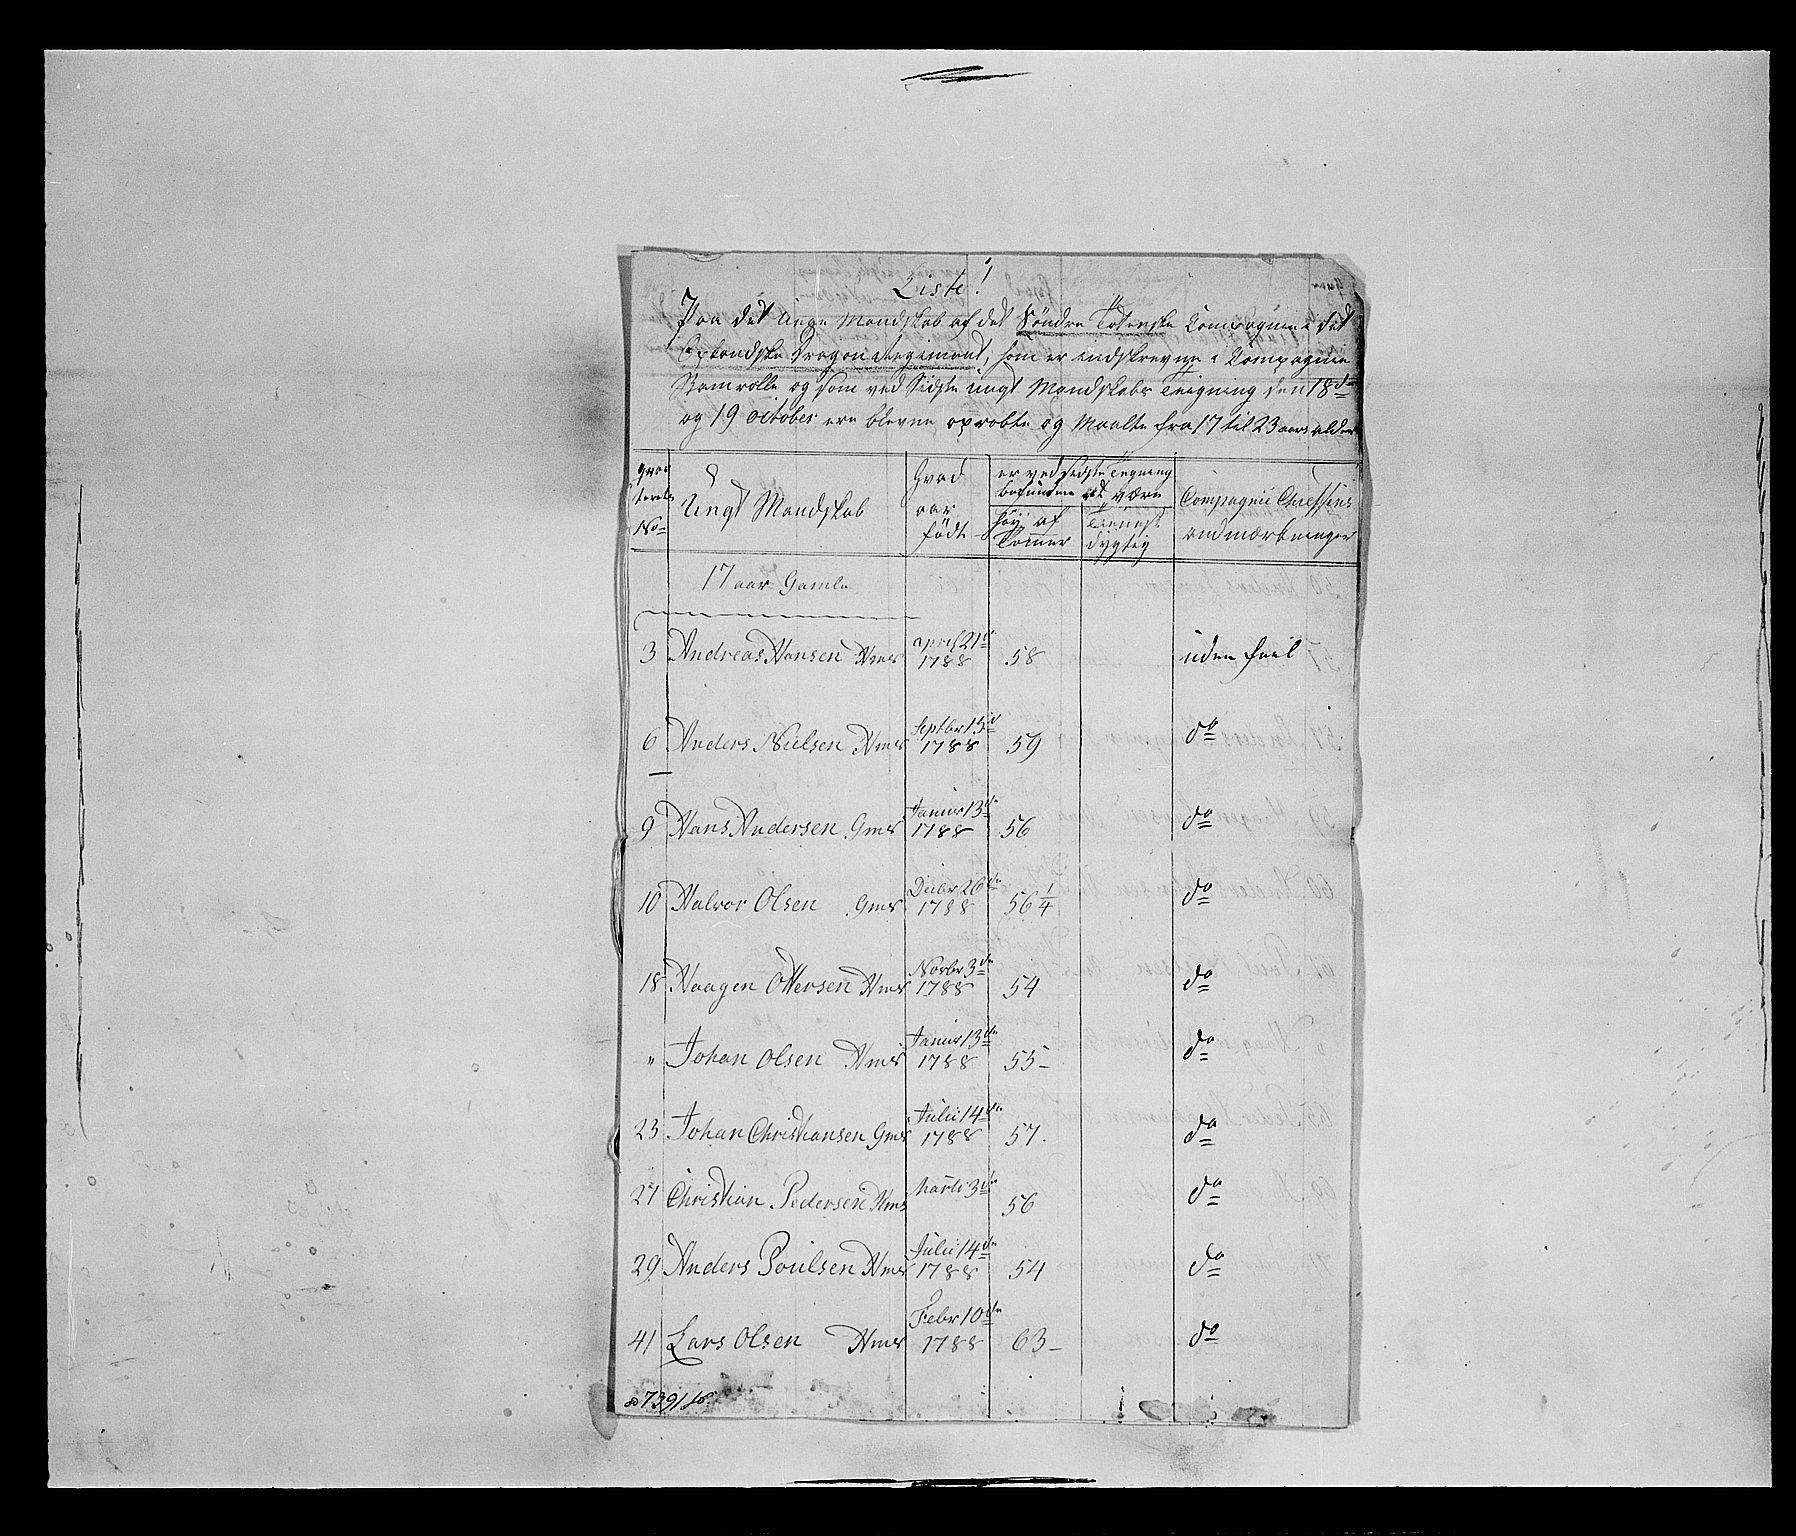 Liste!
Paa det Unge Mandskab af det Søndre Totenske Compagnie i det
Oplandske Dragon Regiment, som er indskrevne i Compagnie
Stamrolle og som ved Sidste ungt Mandskabs Teigning den 18de
og 19 october ere blevne oprobte og Maalte fra 17 til 23 aars alder
No
Ungt Mandskab
Hvad aar født
er ved sidste Tegning befunden at være
Høy af Tommer
Tienest dygtig
Compagnie Cheffens andmærkninger
17 aar Gamle
3 Andreas Hansen Hmd april 21de 1788 58 uden feil
6 Anders Nielsen Hmd Septbr 15de 1788 59 do
9 Hans Andersen Gmd Janur 13de 1788 56 do
10 Halvor Olsen Gmd Decbr 26de 1788 56 1/4 do
18 Haagen Ottersen Hmd Novbr 3de 1788 54 do
" Johan Olsen Hmd Janur 13de 1788 55 - do
23 Johan Christiansen Gmd Julii 14de 1788 57. do
27 Christian Pedersen Hmd Marti 3de 56 do
29 Anders Poulsen Hmd Julii 14de 1788 54 do
41 Lars Olsen Hmd Febr 10de 1788 63 - do